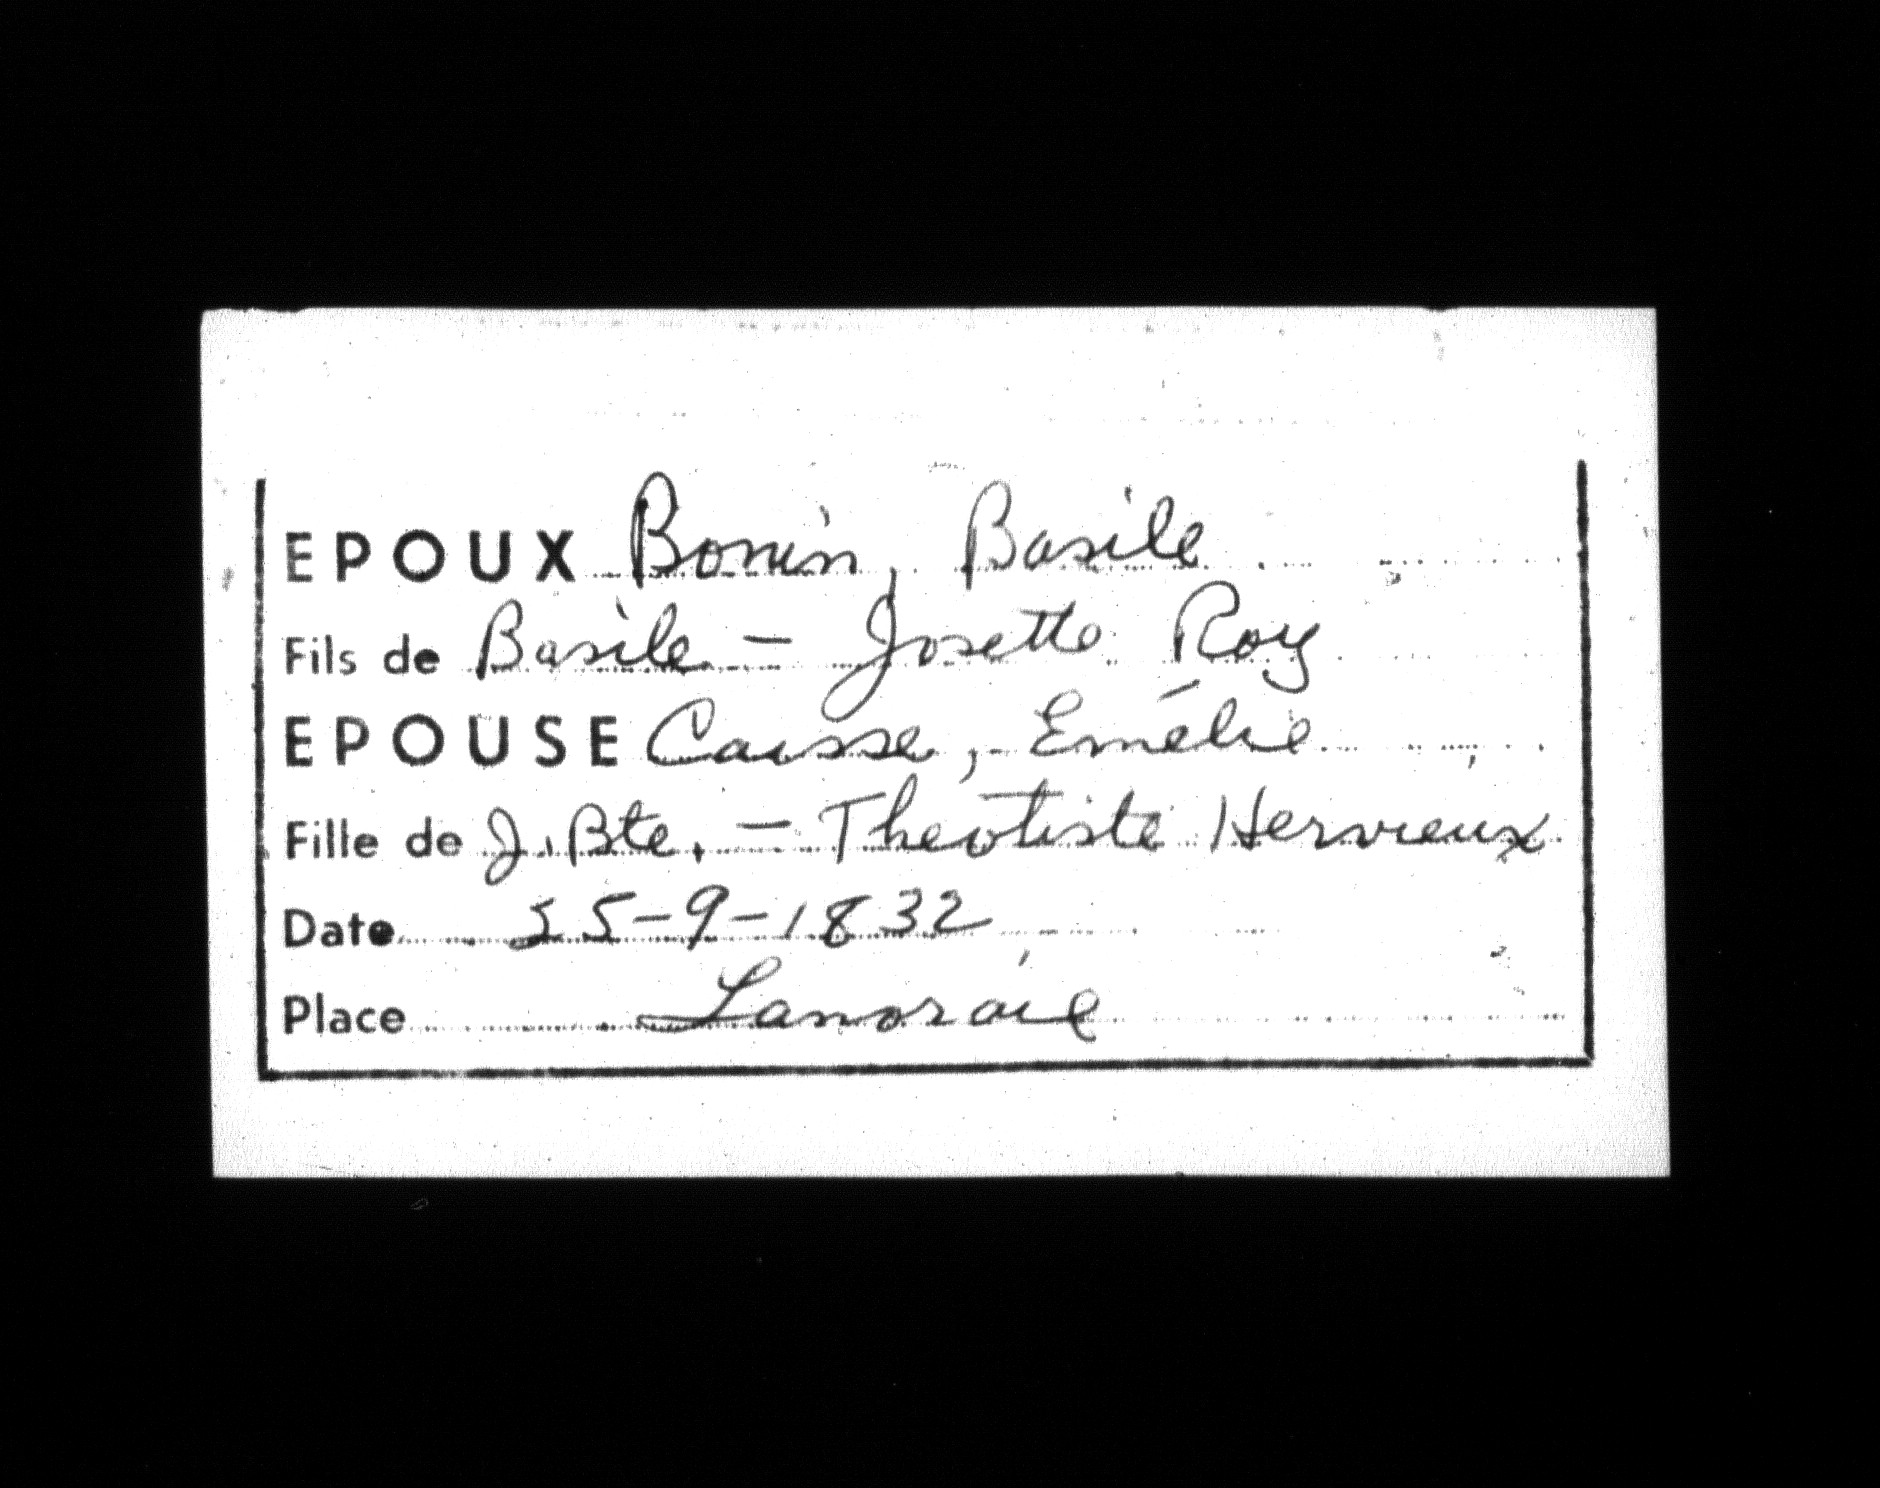 EPOUX Bonin, Basile
Fils de Basile - Josette Roy
EPOUSE Caisse, Emélie
Fille de J. Bte. - Theotiste Hervieux
Date 25-9-1832
Place Lanoraie